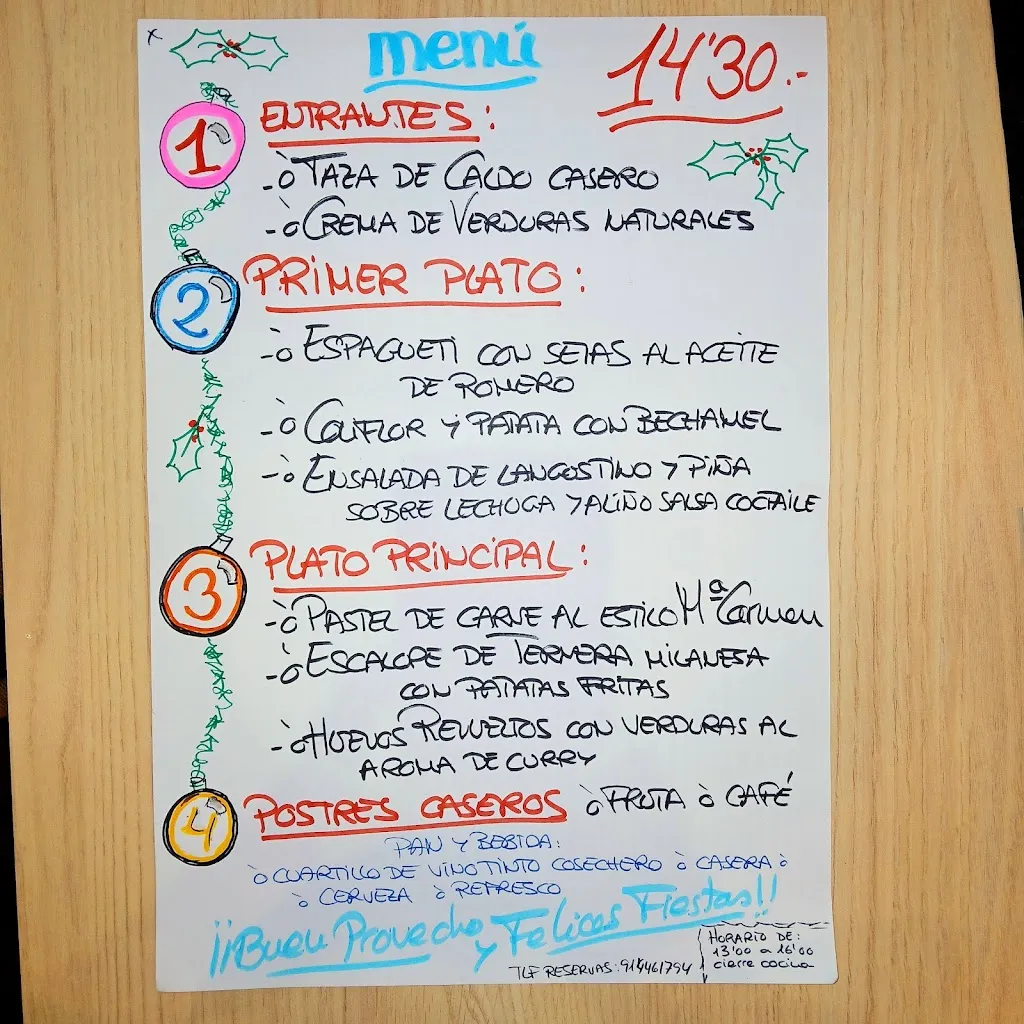 x
menú
14'30.-
1
ENTRANTES:
-ò TAZA DE CALDO CASERO
-ò CREMA DE VERDURAS NATURALES
2
PRIMER PLATO:
-ò ESPAGUETI CON SETAS AL ACEITE
DE ROMERO
-ò COLIFLOR Y PATATA CON BECHAMEL
-ò ENSALADA DE LANGOSTINO Y PIÑA
SOBRE LECHUGA Y ALIÑO SALSA COCTAILE
3
PLATO PRINCIPAL:
-ò PASTEL DE CARNE AL ESTILO Mª Carmen
-ò ESCALOPE DE TERNERA MILANESA
CON PATATAS FRITAS
-ò HUEVOS REVUELTOS CON VERDURAS AL
AROMA DE CURRY
4
POSTRES CASEROS ò FRUTA ò CAFÉ
PAN Y BEBIDA:
ò CUARTILLO DE VINO TINTO COSECHERO ò CASERA ò
ò CERVEZA ò REFRESCO
¡¡Buen Provecho y Felices Fiestas!!
TLF RESERVAS: 914461794
HORARIO DE:
13'00 a 16'00
cierre cocina